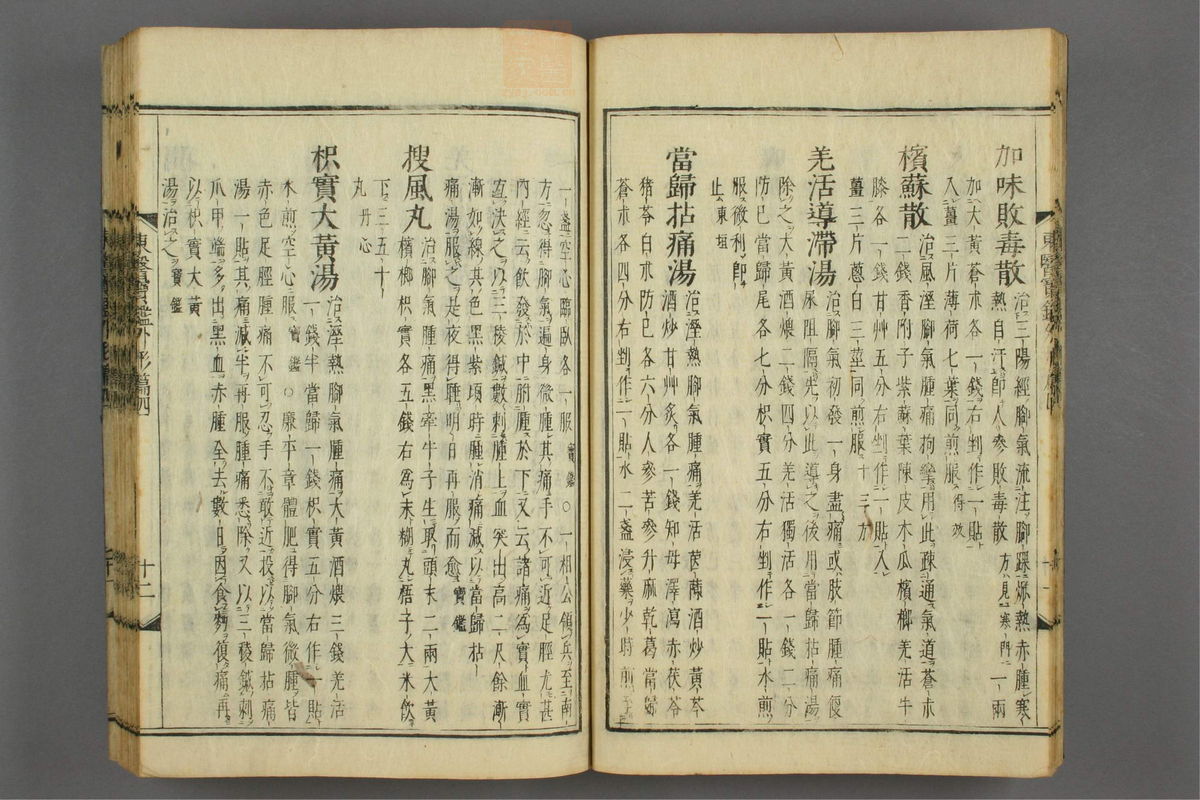 加味敗毒散 治三陽經腳氣流注腳踝焮熱赤腫寒
熱自汗卽人參敗毒散方見寒門一兩
加大黃蒼朮各一錢右剉作一貼
入薑三片薄荷七葉同煎服得效
檳蘇散 治風溼腳氣腫痛拘攣用此疎通氣道蒼朮
二錢香附子紫蘇葉陳皮木瓜檳榔羌活牛
膝各一錢甘艸五分右剉作一貼入
薑三片蔥白三莖同煎服十三方
羌活導滯湯 治腳氣初發一身盡痛或肢節腫痛便
尿阻隔先以此導之後用當歸拈痛湯
除之大黃酒煨二錢四分羌活獨活各一錢二分
防已當歸尾各七分枳實五分右剉作一貼水煎
服微利卽
止東垣
當歸拈痛湯 治溼熱腳氣腫痛羌活茵蔯酒炒黃芩
酒炒甘艸炙各一錢知母澤瀉赤茯苓
猪苓白朮防已各六分人參苦參升麻乾葛當歸
蒼朮各四分右剉作一貼水二盞浸藥少時煎至
一盞空心臨臥各一服寶鑑○一相公領兵至南
方忽得腳氣遍身微腫其痛手不可近足脛尤甚
內經云飲發於中胕腫於下又云諸痛爲實血實
宜決之以三稜鍼數刺腫上血突出高二尺餘漸
漸如線其色黑紫頃時腫消痛減以當歸拈
痛湯服之是夜得睡明日再服而愈寶鑑
搜風丸 治腳氣腫痛黑牽牛子生取頭末二兩大黃
檳榔枳實各五錢右爲末糊丸梧子大米飲
下三五十
丸丹心
枳實大黃湯 治溼熱腳氣腫痛大黃酒煨三錢羌活
一錢半當歸一錢枳實五分右作一貼
水煎空心服寶鑑○廉平章體肥得腳氣微腫皆
赤色足脛腫痛不可忍手不敢近投以當歸拈痛
湯一貼其痛減半再服腫痛悉除又以三稜鍼刺
爪甲端多出黑血赤腫全去數日因食麪復痛再
以枳實大黃
湯治之寶鑑
東醫寶鑑外形篇四
十二